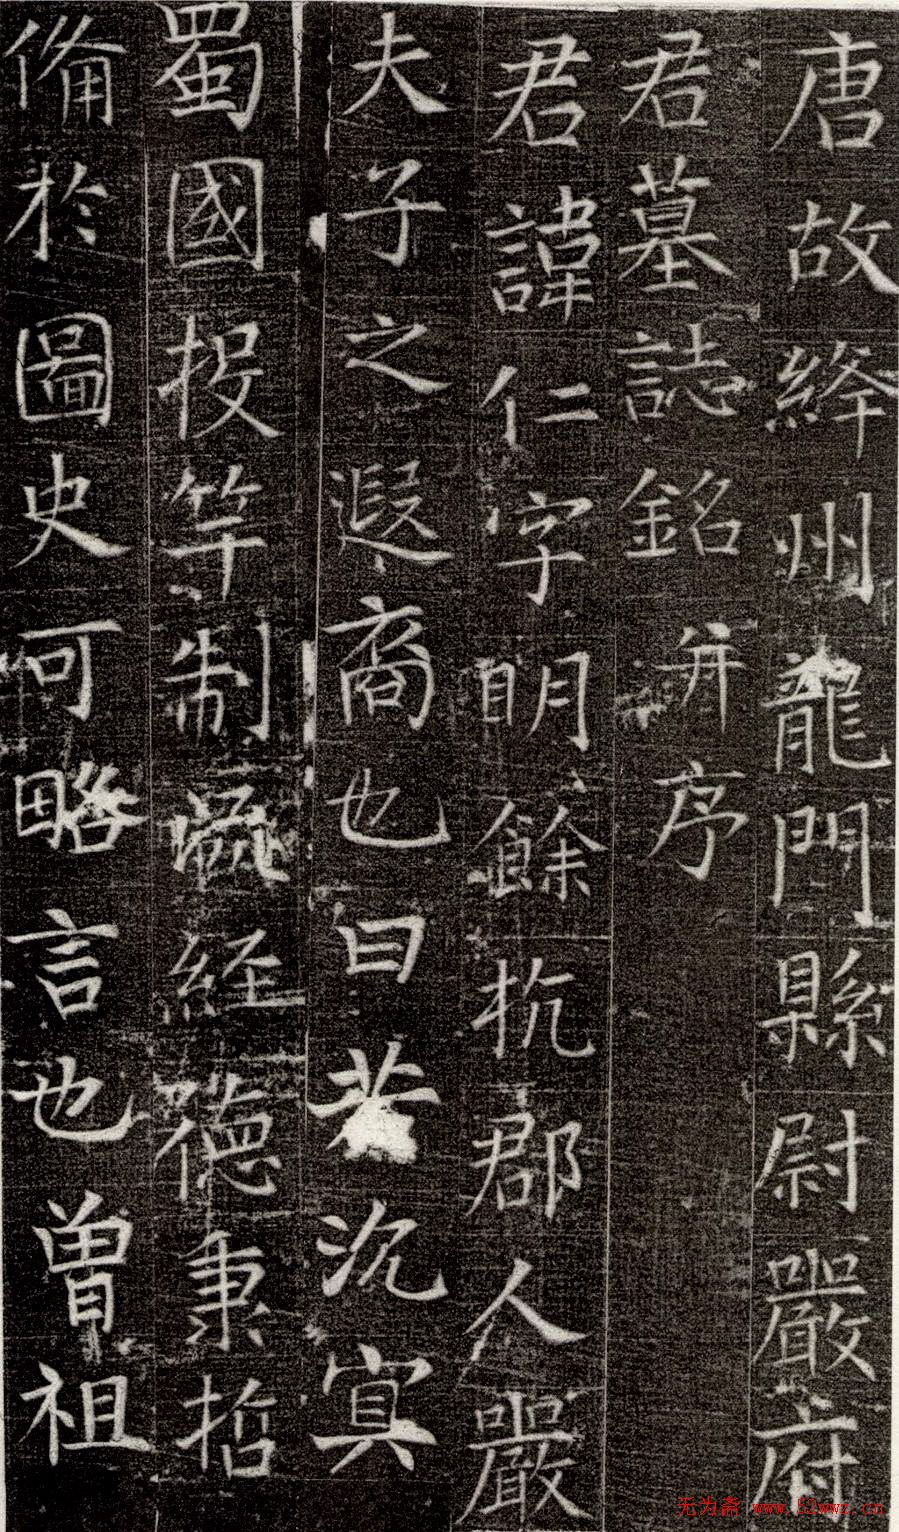 唐故絳州龍門縣尉嚴府
君墓誌銘 并序
君諱仁字明餘杭郡人嚴
夫子之遐裔也曰若沉冥
蜀國投竿制 經德秉哲
備於圖史可略言也曾祖
无为斋 www.52wwz.cn